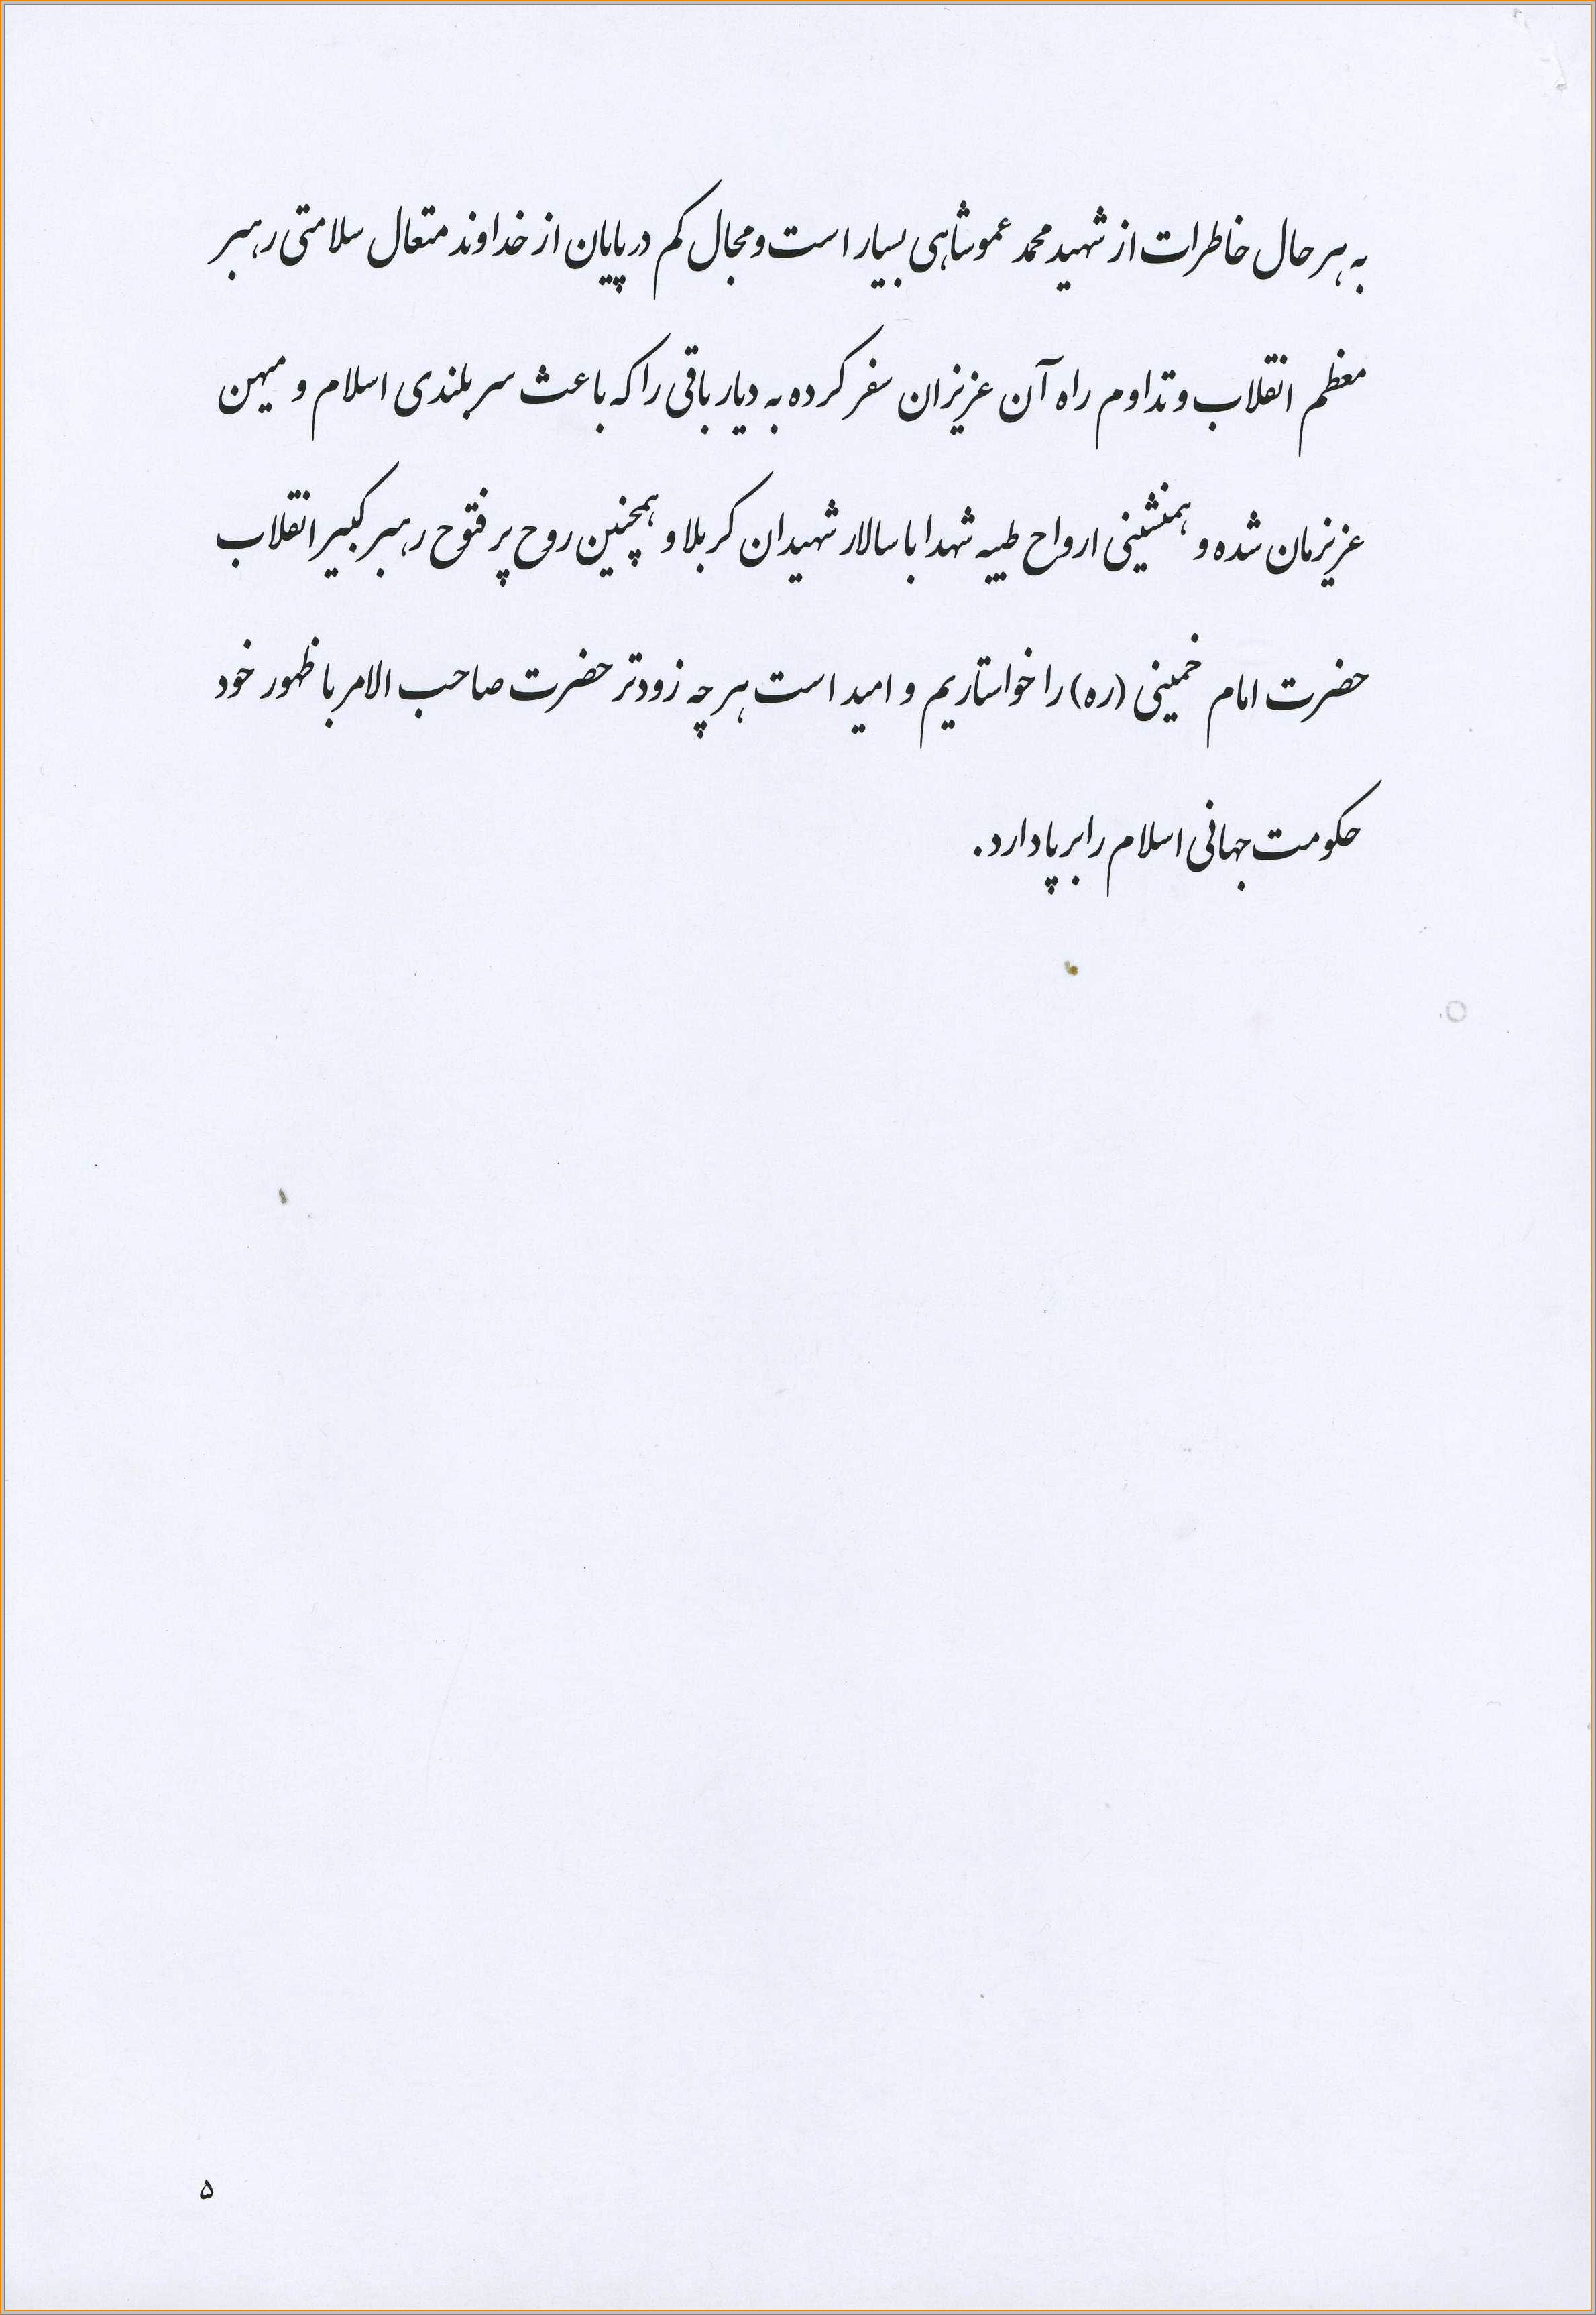 به هر حال خاطرات از شهید محمد عموشاهی بسیار است و مجال کم در پایان از خداوند متعال سلامتی رهبر
معظم انقلاب و تداوم راه آن عزیزان سفر کرده به دیار باقی را که باعث سر بلندی اسلام و میهن
عزیزمان شده و همنشینی ارواح طیبه شهدا با سالار شهیدان کربلا و همچنین روح پر فتوح رهبر کبیر انقلاب
حضرت امام خمینی (ره) را خواستاریم و امید است هر چه زودتر حضرت صاحب الامر با ظهور خود
حکومت جهانی اسلام را بر پا دارد.
۵